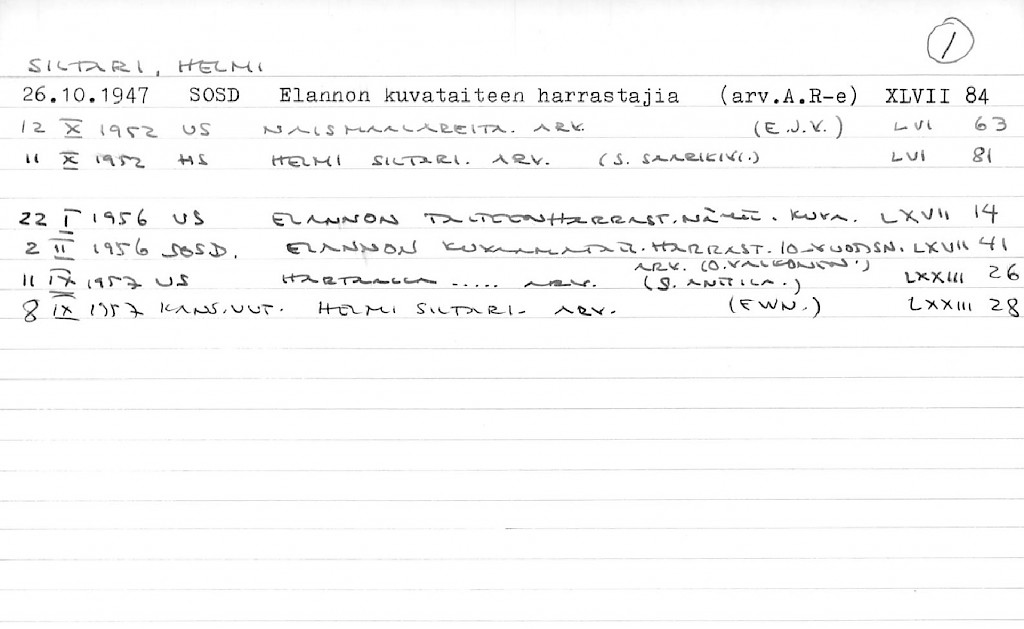 1
SILTARI, HELMI
26.10.1947 SOSD Elannon kuvataiteen harrastajia (arv.A.R-e) XLVII 84
12 X 1952 US NAISMAALAREITA. ARV. (E.J.V.) LVI 63
11 X 1952 HS HELMI SILTARI. ARV. (S. SAARIKIVI.) LVI 81
22 I 1956 US ELANNON TAITEENHARRAST. NÄYTT. KUVA. LXVII 14
2 II 1956 SOSD. ELANNON KUVAAMATAIT. HARRAST. 10-VUODSN. LXVII 41
ARV. (O. VALKONEN.)
11 IX 1957 US ..... ARV. (S. ANTTILA.) LXXIII 26
8 IX 1957 KANS. UUT. HELMI SILTARI. ARV. (EWN.) LXXIII 28